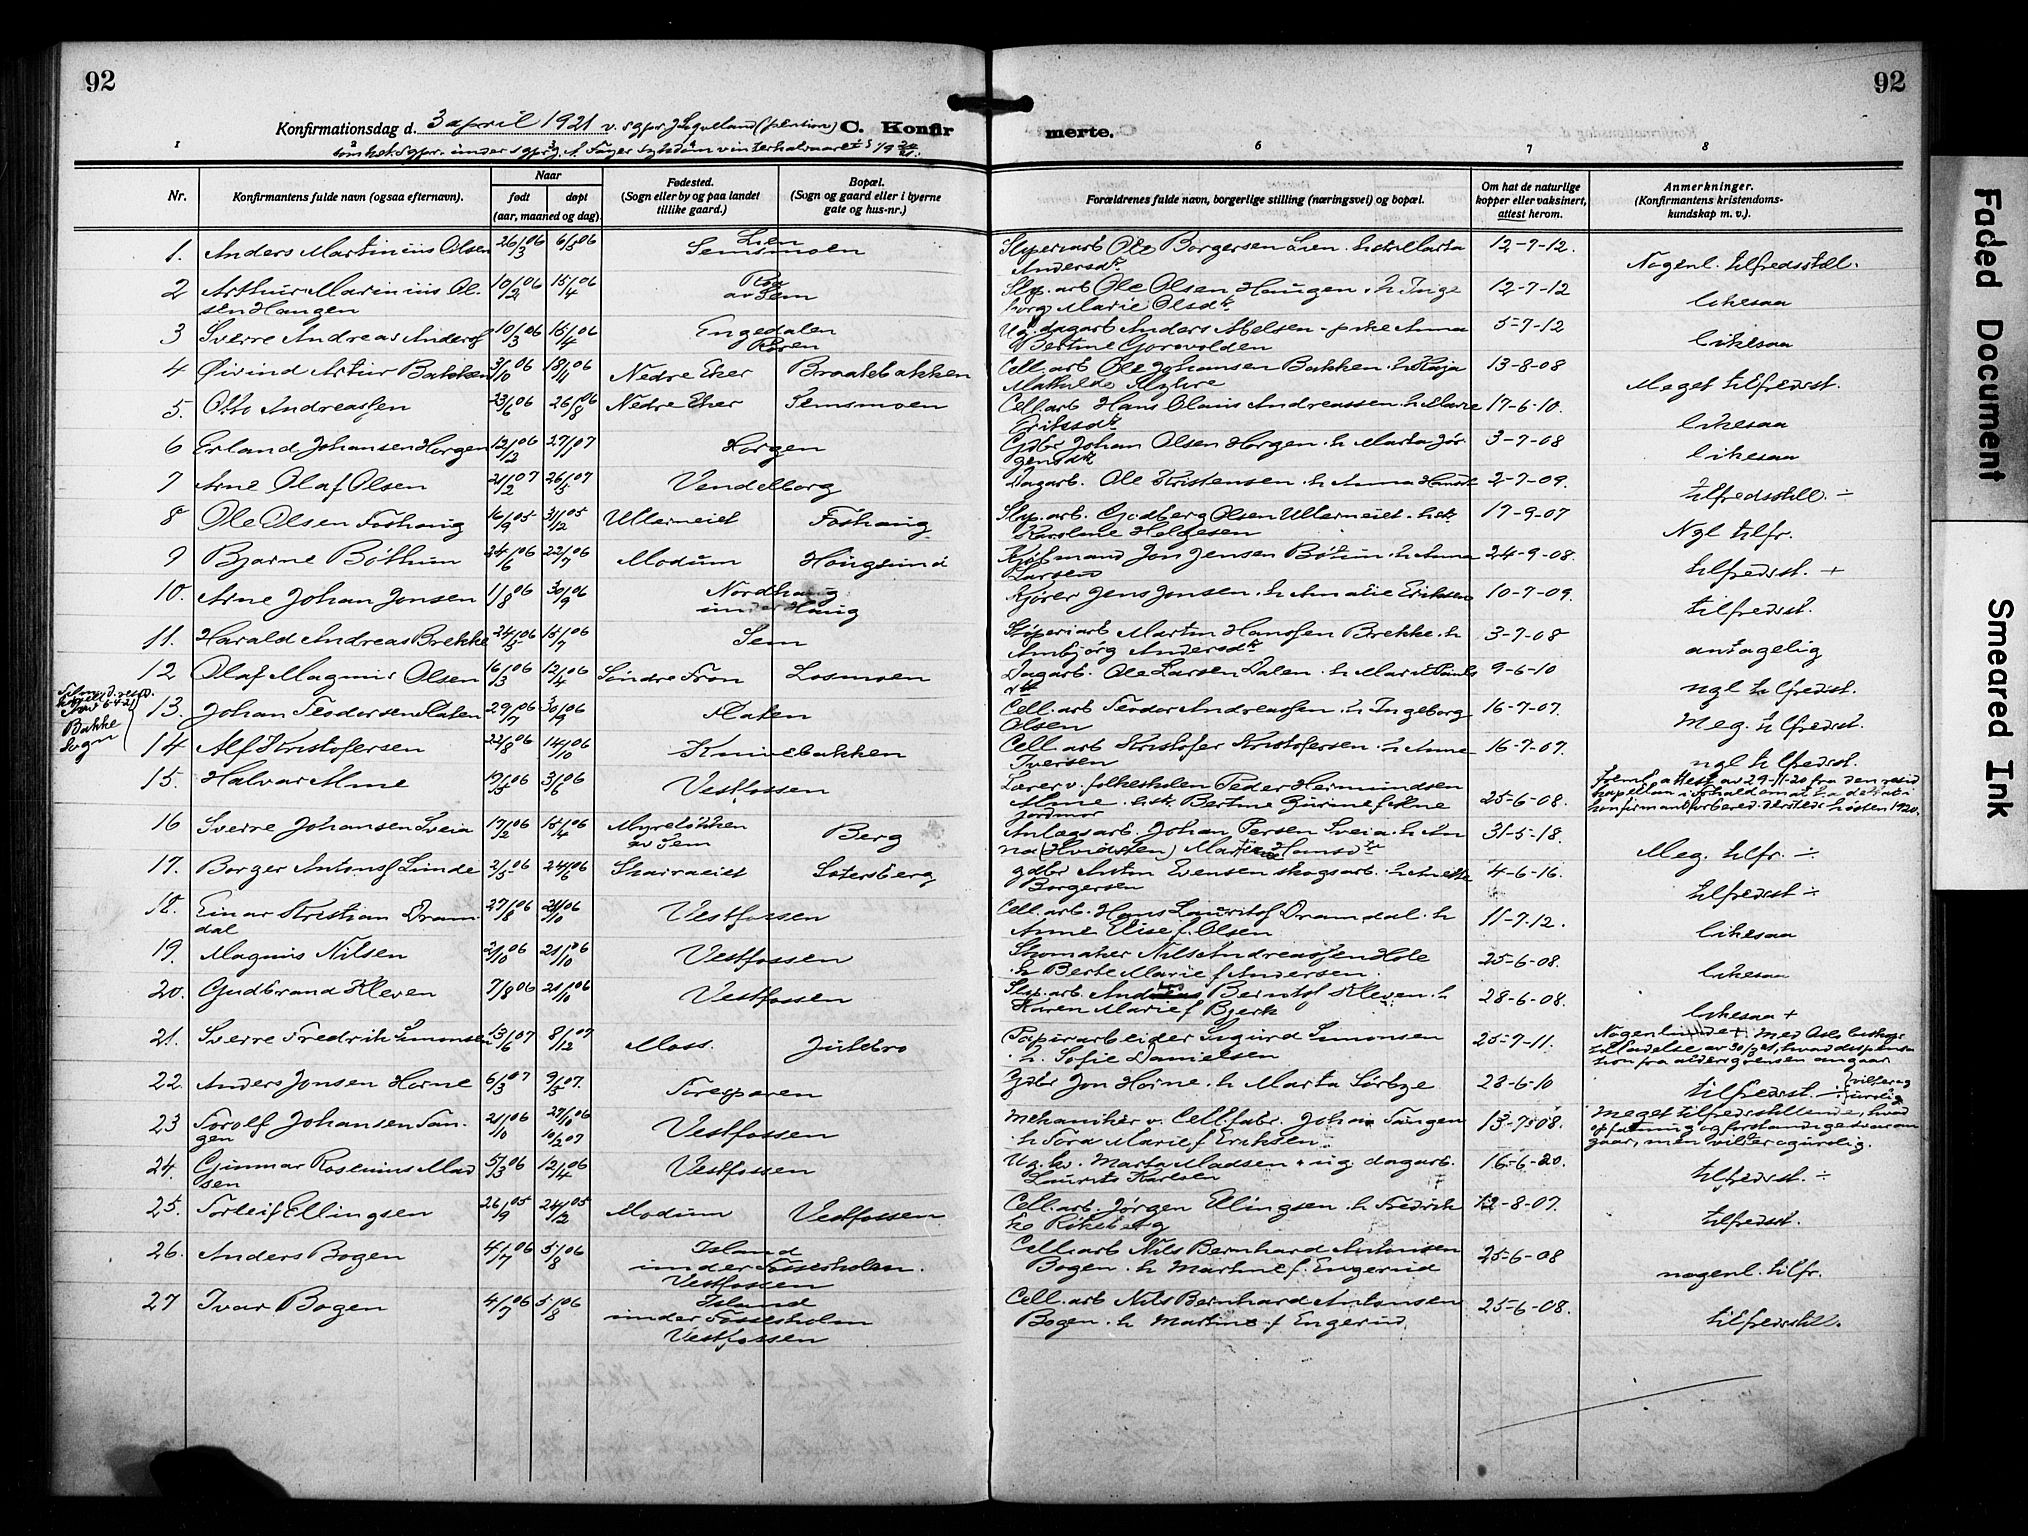 92
92
Konfirmationsdag d. 3 april 1921 v. sgpr (pension) C. Konfir merte.
under sgpr
1 2 3 4 5 6 7 8
Nr.
Konfirmantens fulde navn (ogsaa efternavn).
Naar
født
døpt
(aar, maaned og dag).
Fødested.
(Sogn eller by og paa landet
tillike gaard.)
Bopæl.
(Sogn og gaard eller i byerne
gate og hus-nr.)
Forældrenes fulde navn, borgerlige stilling (næringsvei) og bopæl.
Om hat de naturlige
kopper eller vaksinert,
attest herom.
Anmerkninger.
(Konfirmantens kristendoms-
kundskap m. v.).
1. Anders Martinius Olsen 26/3 06 6/5 06 Lien Semsmoen Ole Borgersen Lien. Marta Andersdtr 12-7-12. Nogenl. tilfredsstill.
2 Arthur Marinius Ol- 10/2 06 15/4 06 av Sem Slip. arb Ole Olsen Haugen. h. Inge 12-7-12 likesaa
sen Haugen borg Marie Olsdtr
3 Sverre Andreas Andersf 10/3 06 16/4 06 Engedalen Ug. dagarb Anders Abelsen - pike Anna 5-7-12 likesaa
Bertine Gorovolden
4 Øivind Artur Bakken 31/10 06 18/11 06 Nedre Eker Braatebakken Cell. arb Ole Johansen Bakken. h. Kaja 13-8-08 Meget tilfredsst.
Mathilde
5. Otto Andreassen 23/6 06 26/8 06 Nedre Eker Semsmoen Cell. arb Hans Olaus Andreassen. h Marie 17-6-10. likesaa
6 Erland Johansen Horgen 12/12 06 27/1 07 Horgen Gdbr Johan Olsen Horgen. h Marta Jør- 3-7-08 likesaa
gensdtr
7 Arne Olaf Olsen 21/2 07 26/5 07 Vendelborg Dagarb. Ole Kristensen. h Anna 2-7-09. tilfredsstill. ÷
8 Ole Olsen Foshaug 16/9 05 31/12 05 Ullerneiet Foshaug Slip. arb. Gudberg Olsen Ullerneiet. 17-9-07 Ngl tilfr.
Karoline Helgesen
9 Bjarne Bøthun 24/6 06 22/7 06 Modum Hougsund Kjøbmand Jon Jensen Bøtun. h. Anna 24-9-08. tilfredsst. +
Larsen
10. Arne Johan Jonsen 1/8 06 30/9 06 Nordhaug Kjører Jens Jonsen. h Amalie Eriksen 10-7-09. tilfredsst.
under Haug
11. Harald Andreas Brekke 24/5 06 15/7 06 Sem Sliperiarb Martin Hanssen Brekke. h 3-7-08 antagelig
Ambjørg Andersdtr
12 Olaf Magnus Olsen 16/3 06 12/4 06 Søndre Fron Losmoen Dagarb. Ole Larsen Dalen. h Marit 9-6-10 ngl tilfredsst.
Bakke
Sogn
13. Johan Teodorsen Flaten 29/7 06 30/9 06 Flaten Cell. arb Teodor Andreassen. h Ingeborg 16-7-07. Meg. tilfredsst.
Olsen
14 Alf Kristofersen 22/8 06 14/10 06 Knivebakken Cell. arb Kristofer Kristofersen. h Anne 16-7-07. ngl tilfredsst.
Iversen
15. Halvar Alme 17/5 06 3/6 06 Vestfossen Lærer v. folkeskolen Peder Hermundsen 25-6-08. Fremb. attest av 29-11-20 fra den resid
Alme. h. Bertine
konfirmantforbered. dersteds høsten 1920.
16 Sverre Johansen Sveia 17/2 06 15/4 06 Myreløkken Berg Anlægsarb. Johan Persen Sveia. h. An 31-5-18. Meg. tilfr. ÷
av Sem
17. Borger Antonsf Lunde 2/5 06 24/6 06 Skaraeiet Sætersberg gdbr Anton Evensen skogsarb. h. 4-6-16. tilfredsst ÷
Borgersen
18. Einar Kristian Dram 27/8 06 21/10 06 Vestfossen Cell. arb. Hans Lauritsf Dramdal. h 11-7-12. likesaa
dal Anne Elise f. Olsen
19. Magnus Nilsen 2/10 06 21/10 06 Vestfossen Skomaker Nils Andreassen Hole 25-6-08. likesaa
h Berte Marie f Andersen.
20. Gudbrand Kleven 7/8 06 21/10 06 Vestfossen Slip. arb. Berntsf Kleven. h 28-6-08. likesaa +
Karen Marie f Bjerk
21. Sverre Fredrik Simonsen 13/6 07 8/12 07 Moss. Julebro Papirarbeider Sigurd Simonsen 25-7-11. Nogenlunde +. Med Oslo biskops
h. Sofie Danielsen tilladelse av 30/3 21, hvad dispensa
tion fra aldersgrensen angaar
22. Anders Jonsen Horne 6/3 07 9/5 07. Toresparen Gdbr Jon Horne. h Marta Sørbye 28-6-10 tilfredsst. ÷
23 Torolf Johansen Tan- 21/10 06 Vestfossen Mekaniker v. Cell. fabr. Johan Tangen 13-7-08. Meget tilfredsstillende, hvad
gen 10/2 07 h Tora Marie f. Eriksen opfatning og forstandige svar an
gaar, men vilter og urolig.
24. Gunnar Rosenius Mad 5/3 06 12/4 06 Vestfossen Ug. kv. Marta Madsen + ug. dagarb. 16-6-20. tilfredsst. ÷
sen Laurits Karlsen
25. Torleif Ellingsen 26/9 05 24/12 05 Modum Vestfossen Cell. arb. Jørgen Ellingsen. h Fredrik 12-8-07. tilfredsst.
ke
26. Anders Bogen 4/7 06 5/8 06 Island Cell. arb Nils Bernhard Antonsen 25-6-08 nogenl. tilfr.
under Fossesholm. Bogen. h Martine f. Engerud
Vestfossen
27 Ivar Bogen 4/7 06 5/8 06 Island Cell. arb Nils Bernhard Antonsen 25-6-08. tilfredsstill.
under Fossesholm Bogen. h Martine f Engerud.
Vestfossen
Faded Document
Smeared Ink